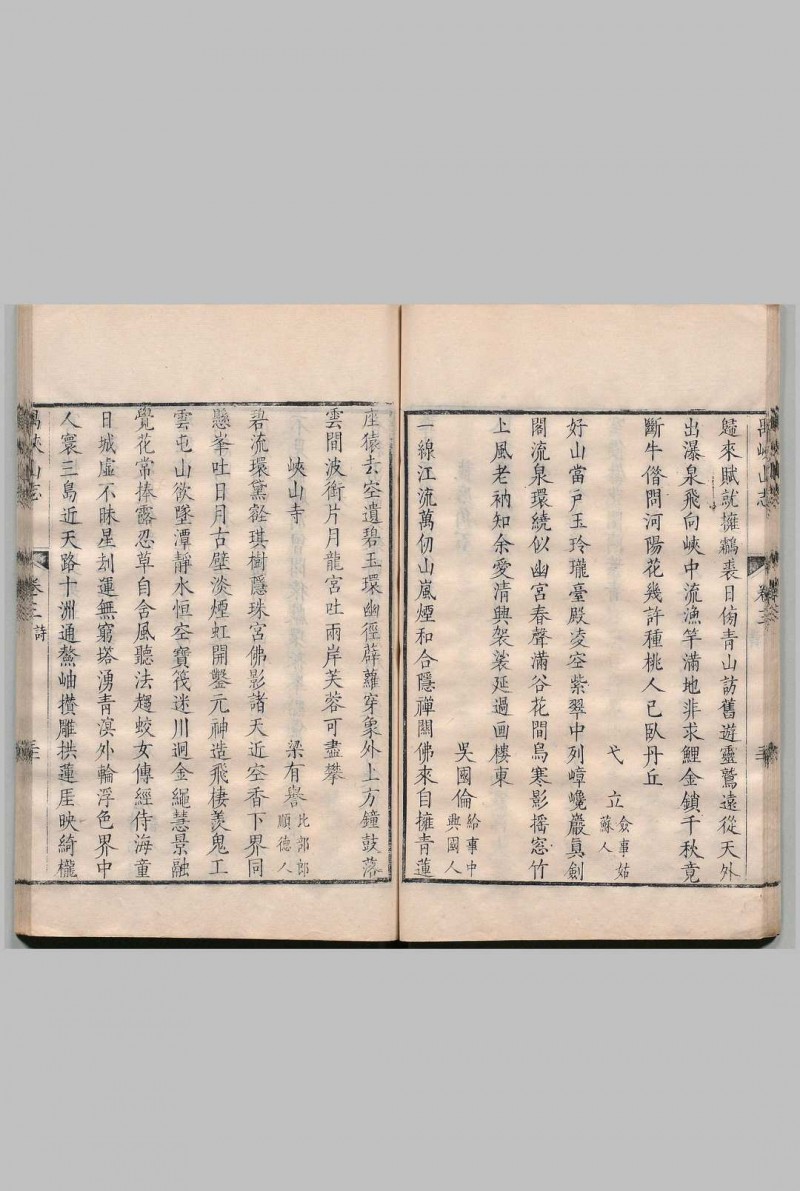 禺峽山志 卷三 詩
歸來賦就擁鷫裘日傍青山訪舊遊靈鷲遠從天外
出瀑泉飛向峽中流漁竿滿地非求鯉金鎖千秋竟
斷牛偕問河陽花幾許種桃人已臥丹丘
弋立 僉事姑蘇人
好山當戸玉玲瓏臺殿凌空紫翠中列嶂巉巖真創
閣流泉環繞似幽宮春聲滿谷花間鳥寒影搖窓竹
上風老衲知余愛清興袈裟延過画樓東
吳國倫 給事中興國人
一線江流萬仞山嵐煙和合隱禪關佛來自擁青蓮
座猿去空遺碧玉環幽徑薜蘿穿象外上方鐘鼓落
雲間波銜片月龍宮吐兩岸芙蓉可盡攀
峽山寺 梁有譽 比部郎順德人
碧流環黛壑琪樹隱珠宮佛影諸天近空香下界同
懸峯吐日月古壁淡煙虹開鑿元神造飛棲羨鬼工
雲屯山欲墜潭靜水恒空寶筏迷川迥金繩慧景融
覺花常捧露忍草自含風聽法趨蛟女傳經侍海童
日城虛不昧星刼運無窮塔湧青溟外輪浮色界中
人寰三島近天路十洲通鰲岫攢雕拱蓮厓映綺櫳
禺峽山志 卷三 詩